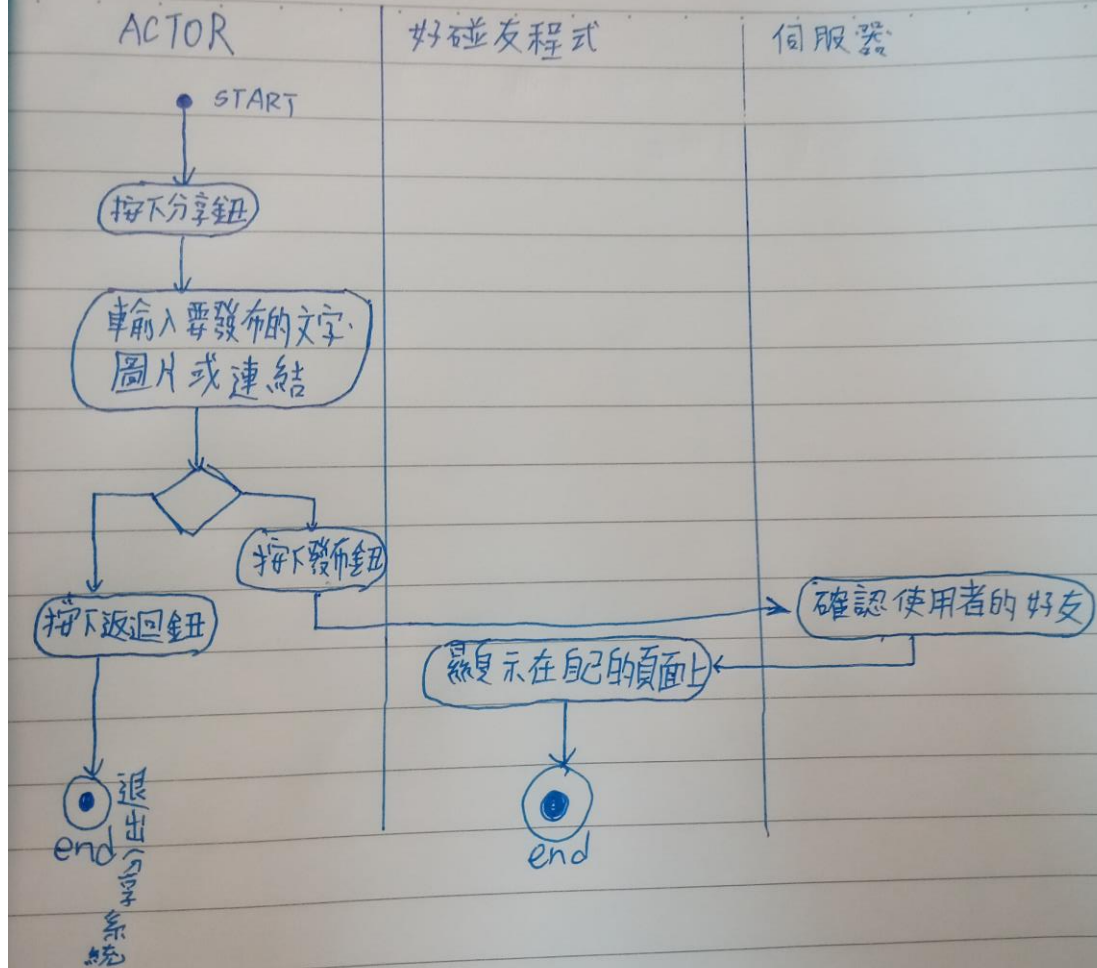 ACTOR
好碰友程式
伺服器
START
按下分享鈕
輸入要發布的文字、
圖片或連結
按下發布鈕
按下返回鈕
確認使用者的好友
顯示在自己的頁面上
end
退出分享系統
end